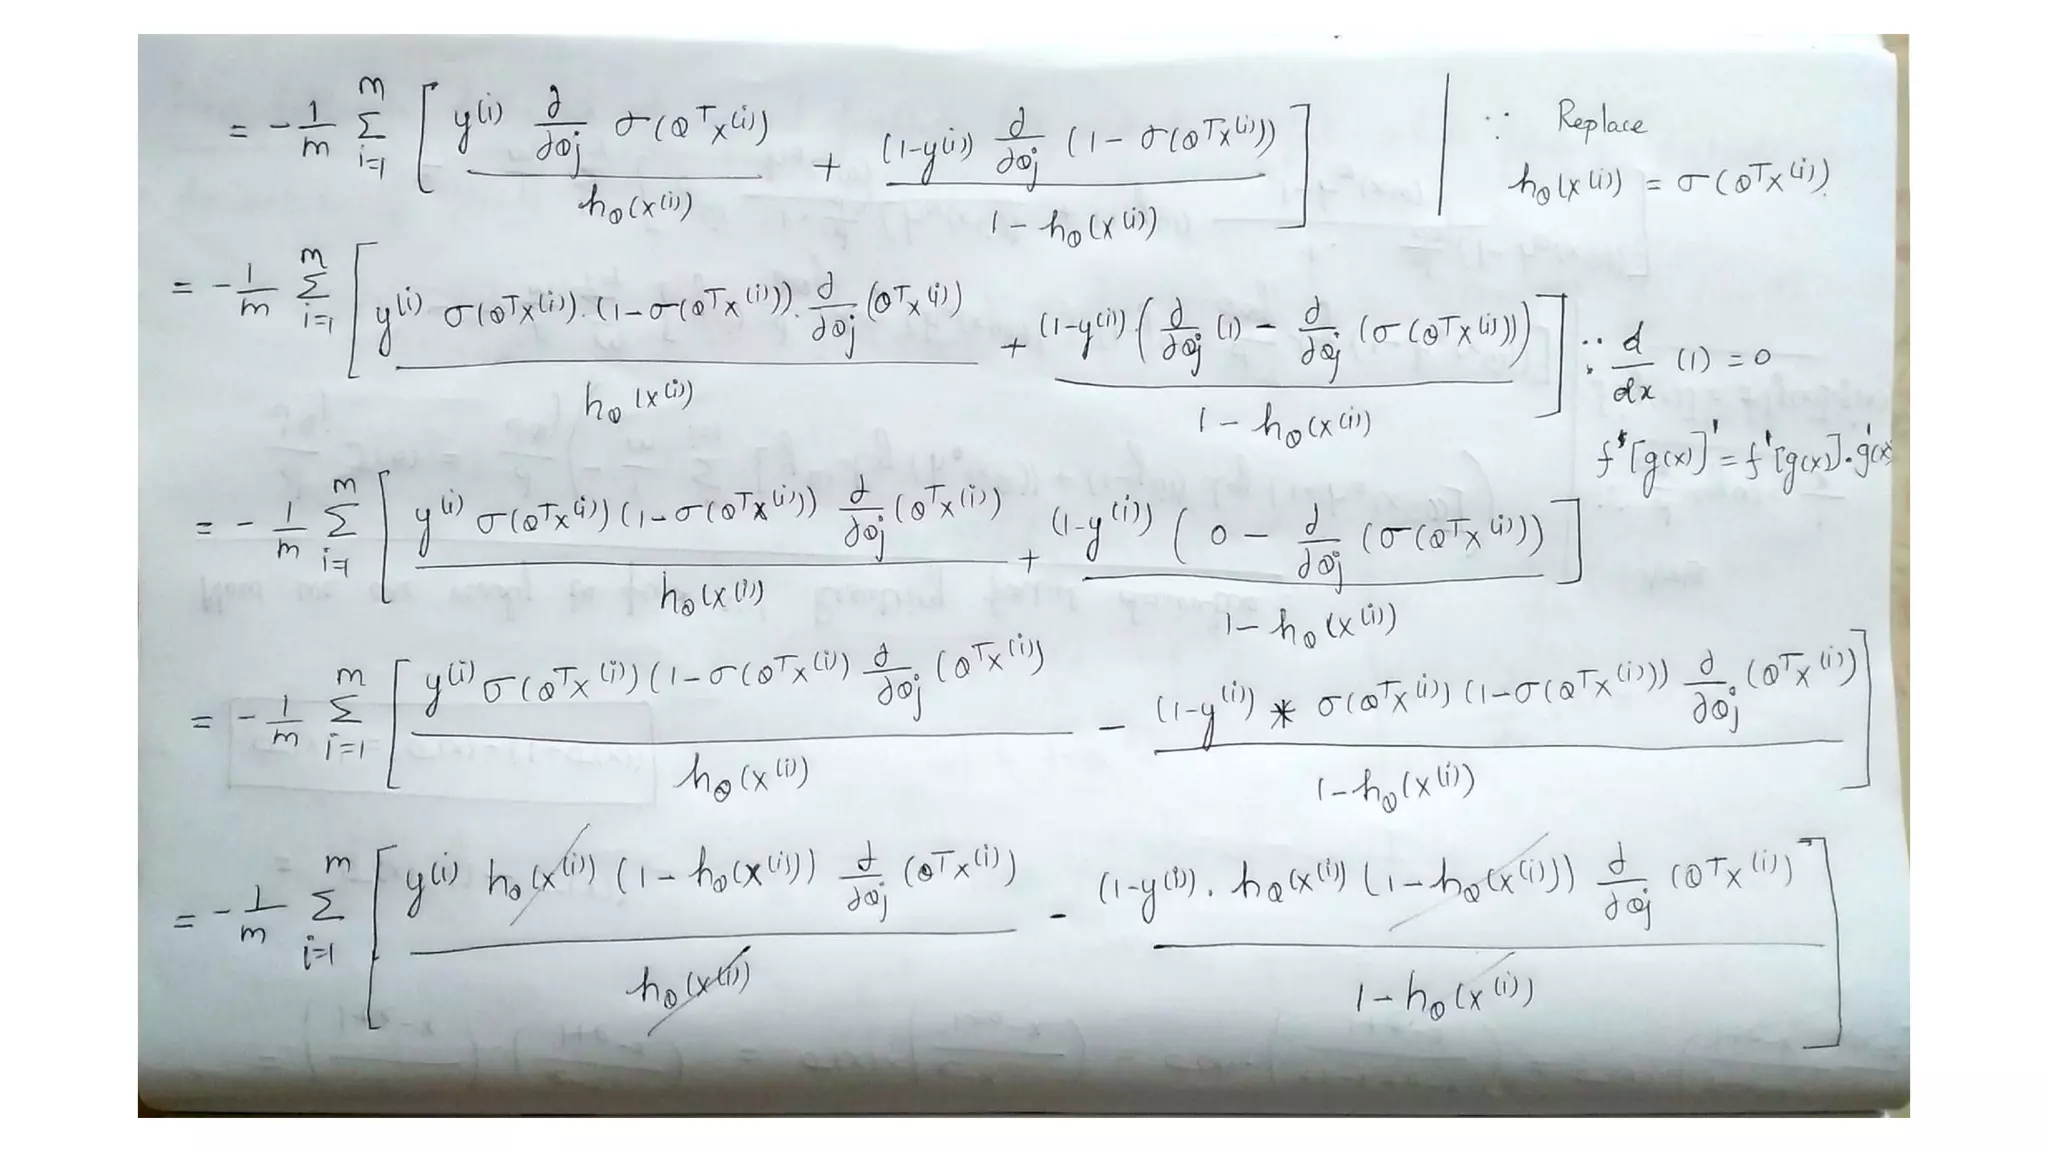 = -1/m Σ_{i=1}^{m} [ y^{(i)} ∂/∂θ_j σ(θ^T x^{(i)}) / h_θ(x^{(i)}) + (1-y^{(i)}) ∂/∂θ_j (1 - σ(θ^T x^{(i)})) / 1 - h_θ(x^{(i)}) ] | ∵ Replace
h_θ(x^{(i)}) = σ(θ^T x^{(i)}).
= -1/m Σ_{i=1}^{m} [ y^{(i)} σ(θ^T x^{(i)}).(1-σ(θ^T x^{(i)})). ∂/∂θ_j (θ^T x^{(i)}) / h_θ(x^{(i)}) + (1-y^{(i)}).( ∂/∂θ_j (1) - ∂/∂θ_j (σ(θ^T x^{(i)})) ) / 1 - h_θ(x^{(i)}) ] ∵ d/dx (1) = 0
f[g(x)]' = f'[g(x)].g'(x)
= -1/m Σ_{i=1}^{m} [ y^{(i)} σ(θ^T x^{(i)}) (1-σ(θ^T x^{(i)})) ∂/∂θ_j (θ^T x^{(i)}) / h_θ(x^{(i)}) + (1-y^{(i)}) ( 0 - ∂/∂θ_j (σ(θ^T x^{(i)})) / 1 - h_θ(x^{(i)}) ]
= -1/m Σ_{i=1}^{m} [ y^{(i)} σ(θ^T x^{(i)}) (1-σ(θ^T x^{(i)}) ∂/∂θ_j (θ^T x^{(i)}) / h_θ(x^{(i)}) - (1-y^{(i)}) * σ(θ^T x^{(i)}) (1-σ(θ^T x^{(i)})) ∂/∂θ_j (θ^T x^{(i)}) / 1 - h_θ(x^{(i)}) ]
= -1/m Σ_{i=1}^{m} [ y^{(i)} h_θ(x^{(i)}) (1 - h_θ(x^{(i)})) ∂/∂θ_j (θ^T x^{(i)}) / h_θ(x^{(i)}) - (1-y^{(i)}). h_θ(x^{(i)}) (1 - h_θ(x^{(i)})) ∂/∂θ_j (θ^T x^{(i)}) / 1 - h_θ(x^{(i)}) ]